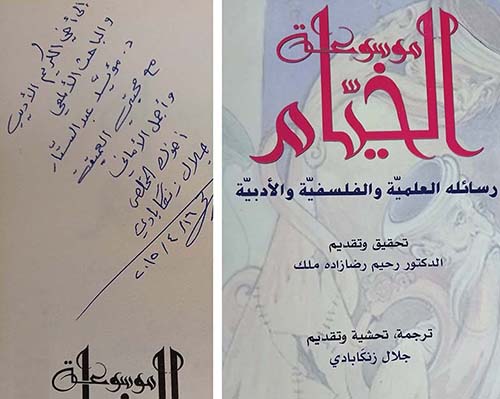 إلى أخي الكريم الأديب
والباحث الألمعي
د. مؤيد عبد الستار
مع محبتي العميقة
وأجمل الأماني
أخوك المخلص
جلال زنگابادي
٢٠١٥/٤/١٦
موسوعة
موسوعة
الخيّام
رسائله العلميّة والفلسفيّة والأدبيّة
تحقيق وتقديم
الدكتور رحيم رضازاده ملك
ترجمة، تحشية وتقديم
جلال زنگابادي